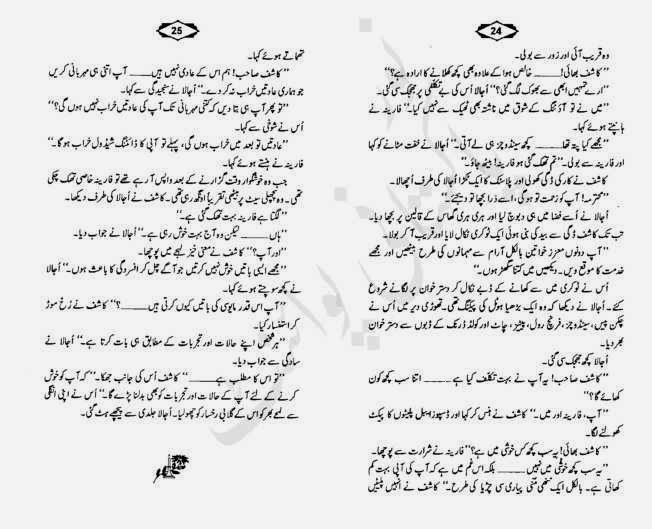 24
وہ قریب آئی اور زور سے بولی۔
’’کاشف بھائی!۔۔۔۔۔۔ خالص ہوا کے علاوہ بھی کچھ کھلانے کا ارادہ ہے؟‘‘
’’ارے تمہیں ابھی سے بھوک لگ گئی؟‘‘ اُجالا اُس کی بے تکلفی پر جھجک سی گئی۔
’’میں نے تو آؤٹنگ کے شوق میں ناشتہ بھی ٹھیک سے نہیں کیا۔‘‘ فارینہ نے
ہانپتے ہوئے کہا۔
’’مجھے کیا پتہ تھا۔۔۔۔۔۔ کچھ سینڈوچز ہی لے آتی۔‘‘ اُجالا نے خفت مٹانے کو کہا
اور فارینہ سے بولی۔ ’’تم تھک گئی ہو فارینہ! بیٹھ جاؤ۔‘‘
کاشف نے کار کی ڈگی کھولی اور پلاسٹک کا ایک ٹکڑا اُجالا کی طرف اُچھالا۔
’’محترمہ! آپ کو زحمت تو ہوگی، اسے ذرا بچھا تو دیجئے۔‘‘
اُجالا نے اُسے فضا میں ہی دبوچ لیا اور ہری ہری گھاس کے قالین پر بچھا دیا۔
تب تک کاشف ڈگی سے بید کی بنی ہوئی ایک ٹوکری نکال لایا اور قریب آ کر بولا۔
’’آپ دونوں معزز خواتین بالکل آرام سے مہمانوں کی طرح بیٹھیں اور مجھے
خدمت کا موقع دیں۔ دیکھیں میں کتنا سگھڑ ہوں۔‘‘
اُس نے ٹوکری میں سے کھانے کے ڈبے نکال کر دسترخوان پر لگانے شروع
کئے۔ اُجالا نے دیکھا کہ وہ ایک بڑھیا ہوٹل کی پیکنگ تھی۔ تھوڑی دیر میں اُس نے
چکن پیس، سینڈوچز، فرنچ رول، پیٹیز، چاٹ اور کولڈ ڈرنک کے ڈبوں سے دسترخوان
بھر دیا۔
اُجالا کچھ جھجک سی گئی۔
’’کاشف صاحب! یہ آپ نے بہت تکلف کیا ہے۔۔۔۔۔۔ اتنا سب کچھ کون
کھائے گا؟‘‘
’’آپ، فارینہ اور میں۔‘‘ کاشف نے ہنس کر کہا اور ڈسپوزایبل پلیٹوں کا پیکٹ
کھولنے لگا۔
’’کاشف بھائی! یہ سب کچھ کس خوشی میں ہے؟‘‘ فارینہ نے شرارت سے پوچھا۔
’’یہ سب کچھ خوشی میں نہیں۔۔۔۔۔۔ بلکہ اس غم میں ہے کہ آپ کی آپی بہت کم
کھاتی ہے۔ بالکل ایک ننھی مُنی پیاری سی چڑیا کی طرح۔‘‘ کاشف نے اُنہیں پلیٹیں
25
تھماتے ہوئے کہا۔
’’کاشف صاحب! ہم اس کے عادی نہیں ہیں۔۔۔۔۔۔ آپ اتنی ہی مہربانی کریں
جو ہماری عادتیں خراب نہ کر دے۔‘‘ اُجالا نے سنجیدگی سے کہا۔
’’تو پھر آپ ہی بتا دیں کہ کتنی مہربانی تک آپ کی عادتیں خراب نہیں ہوں گی؟‘‘
اُس نے شوخی سے کہا۔
’’عادتیں تو بعد میں خراب ہوں گی، پہلے تو آپی کا ڈائٹنگ شیڈول خراب ہوگا۔‘‘
فارینہ نے ہنستے ہوئے کہا۔
جب وہ خوشگوار وقت گزارنے کے بعد واپس آ رہے تھے تو فارینہ خاصی تھک چکی
تھی۔ وہ پچھلی سیٹ پر بیٹھی تقریباً اونگھ رہی تھی۔ کاشف نے اُجالا کی طرف دیکھا۔
’’لگتا ہے فارینہ بہت تھک گئی ہے۔‘‘
’’ہاں۔۔۔۔۔۔ لیکن وہ آج بہت خوش رہی ہے۔‘‘ اُجالا نے جواب دیا۔
’’اور آپ؟‘‘ کاشف نے معنی خیز لہجے میں پوچھا۔
’’مجھے ایسی باتیں خوش نہیں کرتیں جو آگے چل کر افسردگی کا باعث ہوں۔‘‘ اُجالا
نے کچھ سوچتے ہوئے کہا۔
’’آپ اس قدر مایوسی کی باتیں کیوں کرتی ہیں۔۔۔۔۔۔؟‘‘ کاشف نے رُخ موڑ
کر استفسار کیا۔
’’ہر شخص اپنے حالات اور تجربات کے مطابق ہی بات کرتا ہے۔‘‘ اُجالا نے
سادگی سے جواب دیا۔
’’تو اس کا مطلب ہے۔۔۔۔۔۔‘‘ کاشف اُس کی جانب جھکا۔ ’’کہ آپ کو خوش
کرنے کے لئے آپ کے حالات اور تجربات کو بھی بدلنا پڑے گا۔‘‘ اُس نے اپنی انگلی
سے لمحے بھر کو اُس کے گلابی رخسار کو چھو لیا۔ اُجالا جلدی سے پیچھے ہٹ گئی۔